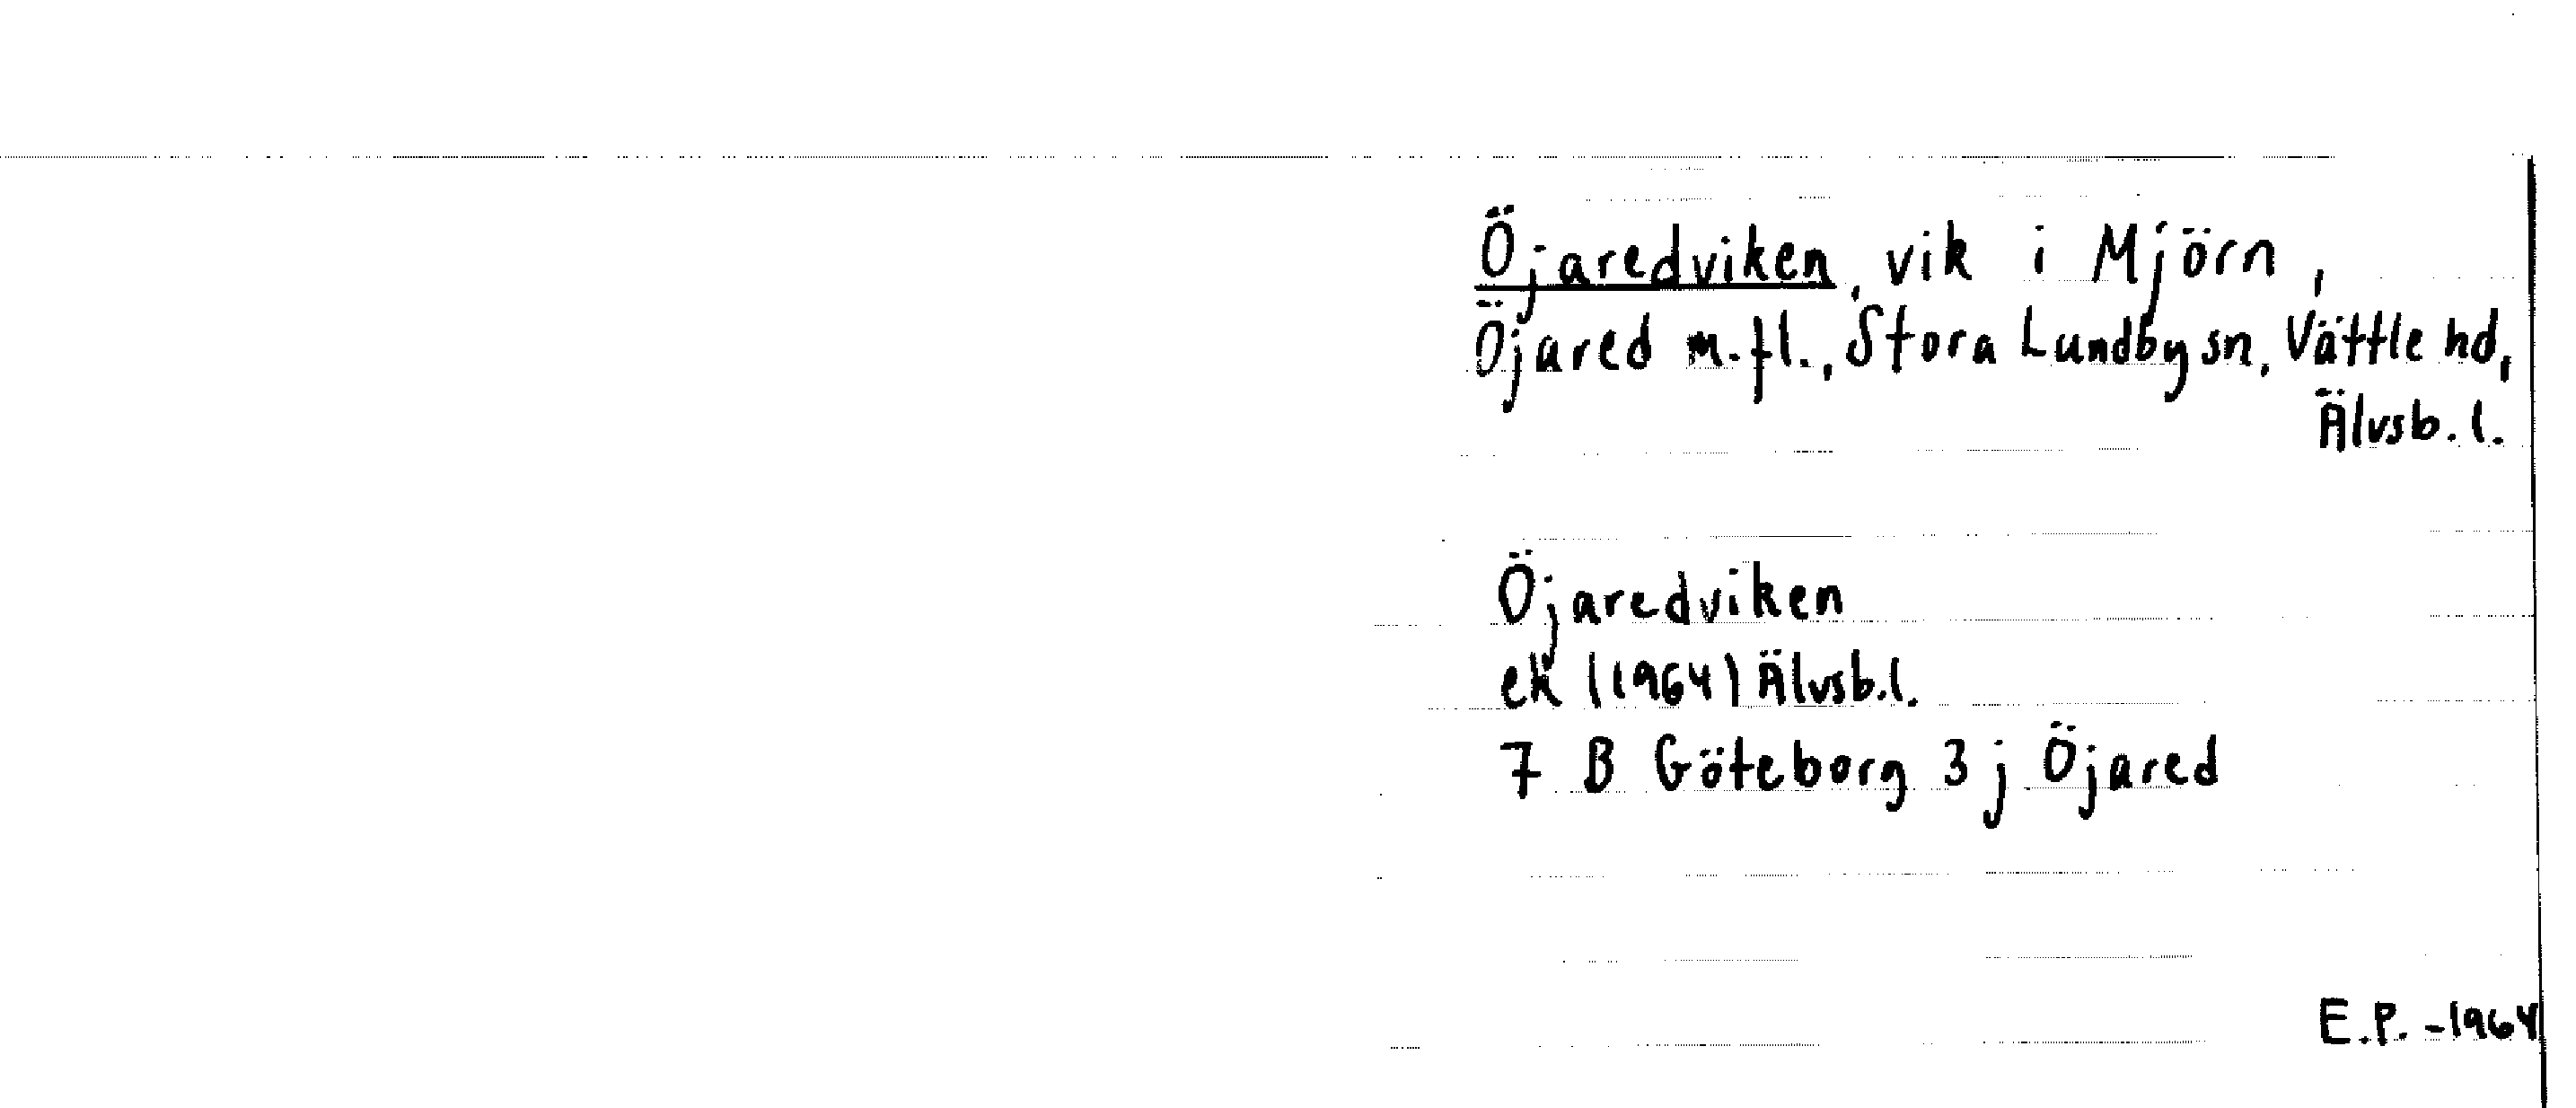 Öjaredviken, vik i Mjörn,
Öjared m.fl., Stora Lundby sn, Vättle hd,
Älvsb.l.
Öjaredviken
ek (1964) Älvsb.l.
7 B Göteborg 3 j Öjared
E.P. -1964